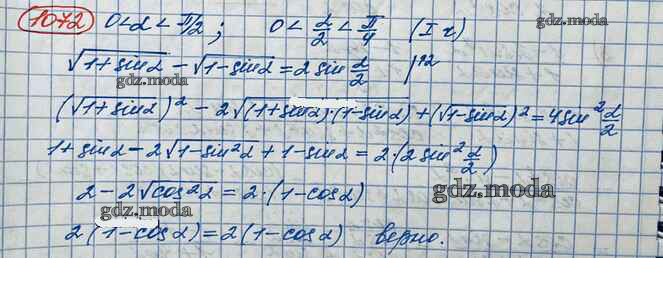 1072 0<α<π/2; 0<α/2<π/4 (I ч)
√1+sinα − √1−sinα = 2 sin α/2 |^2
gdz.moda
(√1+sinα)² − 2√(1+sinα)·(1−sinα) + (√1−sinα)² = 4sin² α/2
1+sinα−2√1−sin²α+1−sinα = 2·(2sin² α/2)
2−2√cos²α = 2·(1−cosα)
gdz.moda gdz.moda
gdz.moda
2(1−cosα)=2(1−cosα) верно.